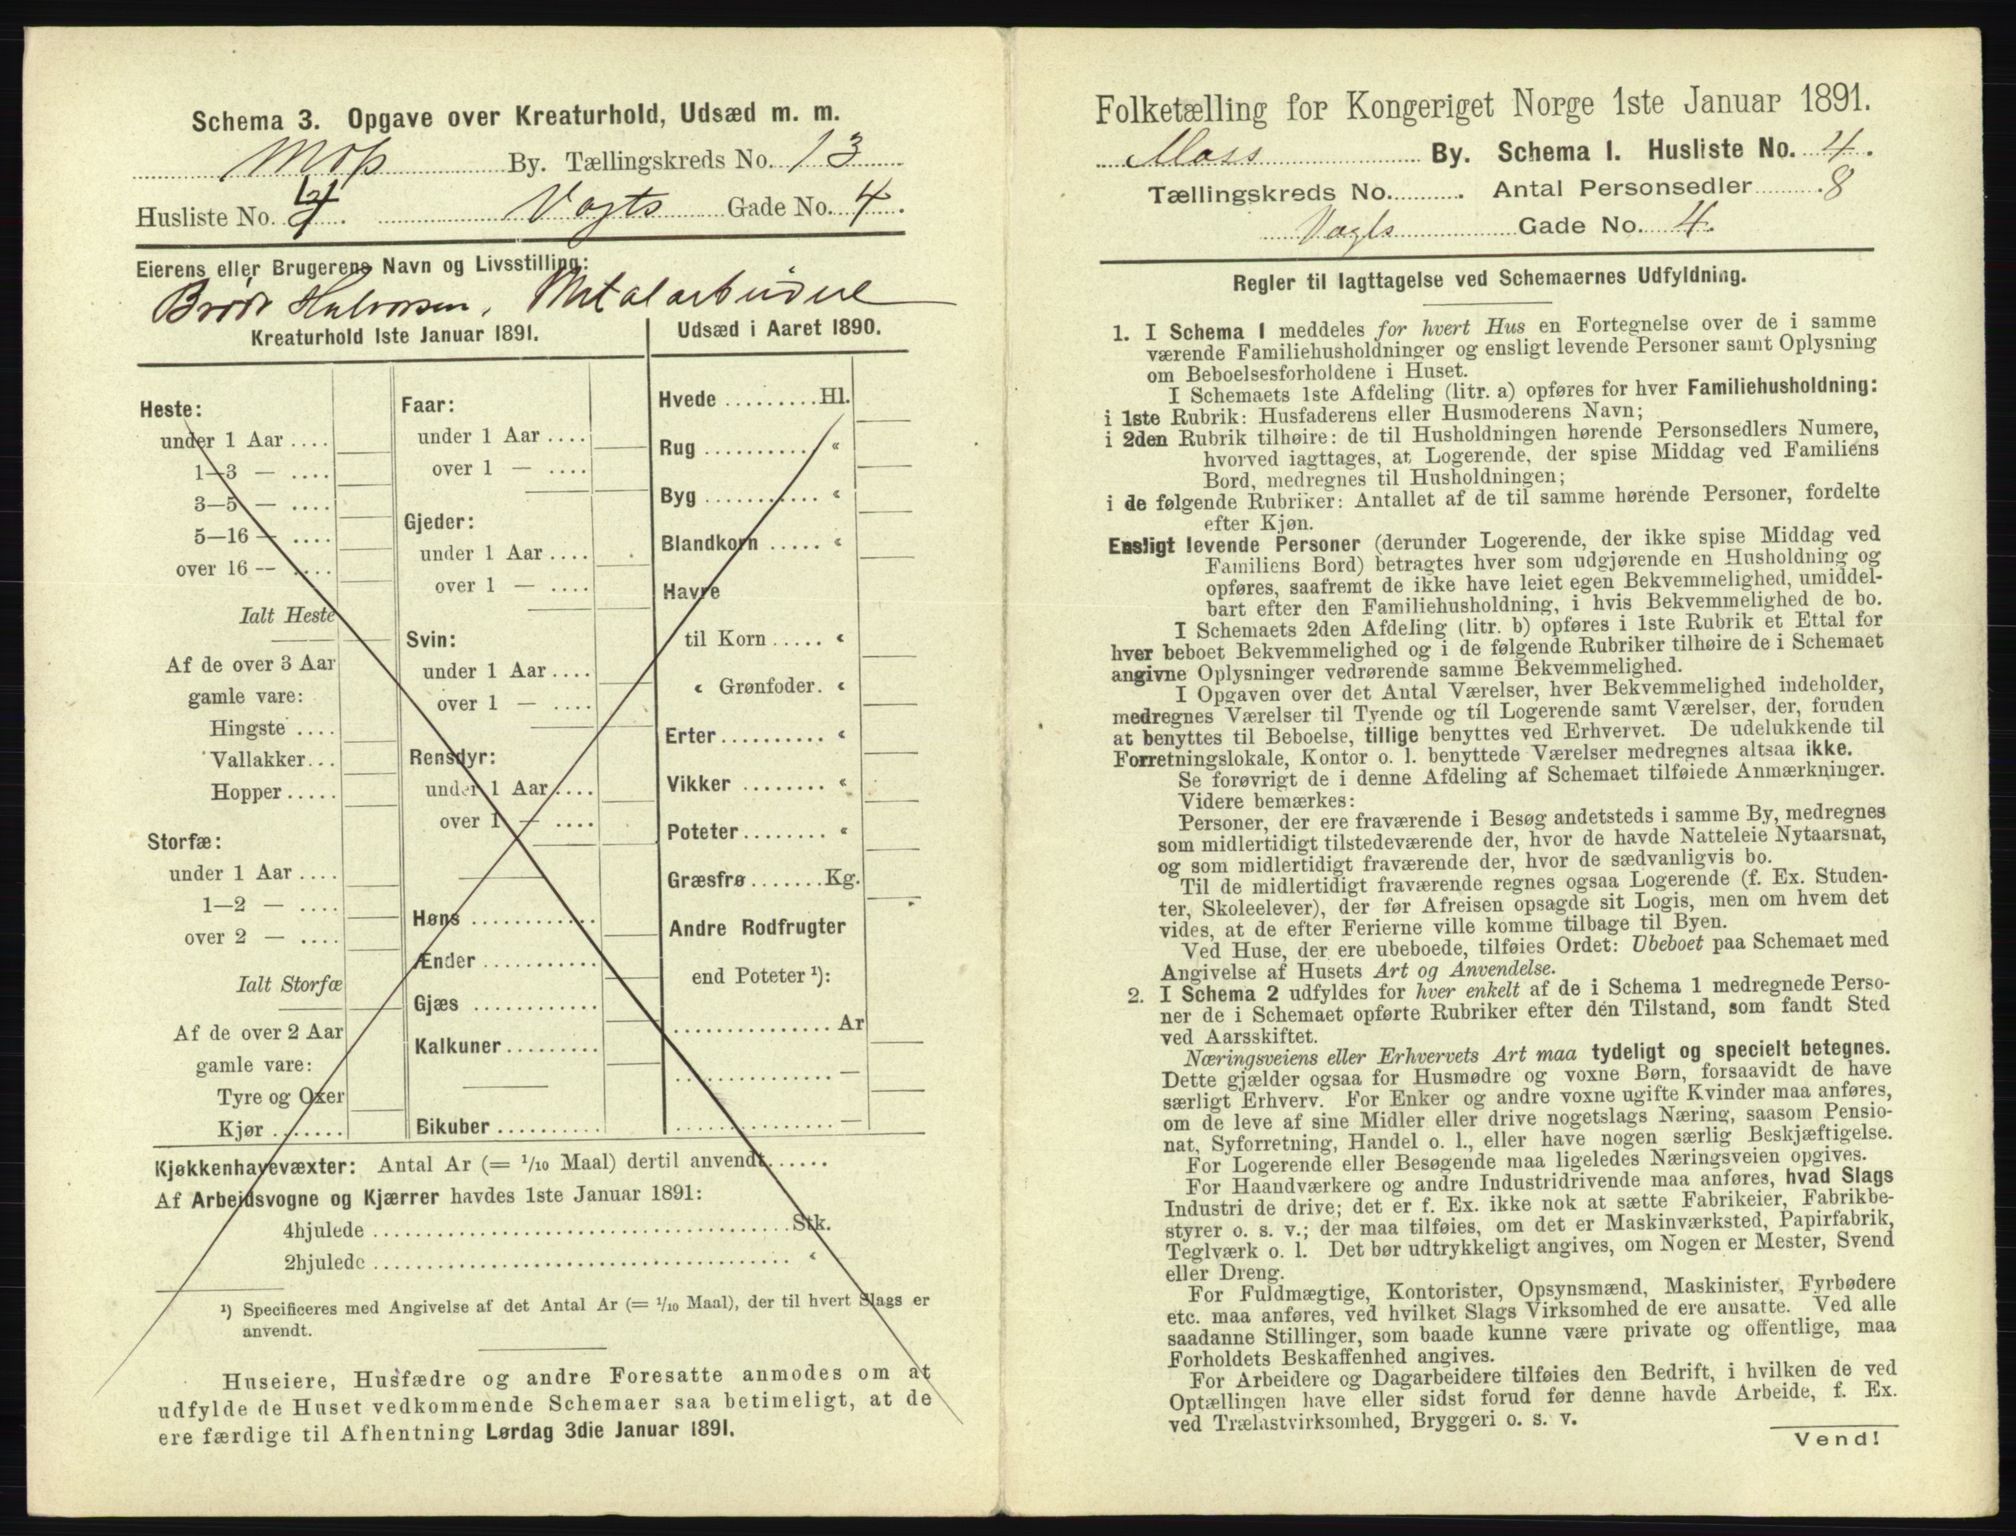 Schema 3. Opgave over Kreaturhold, Udsæd m. m.
Moss By. Tællingskreds No. 13
Husliste No. 4. Vogts Gade No. 4.
Eierens eller Brugerens Navn og Livsstilling:
Brødr Halvorsen, Metalarbeidere
Kreaturhold 1ste Januar 1891.
Heste:
under 1 Aar ....
1—3 — ....
3—5 — ....
5—16 — ....
over 16 — ....
Ialt Heste
Af de over 3 Aar
gamle vare:
Hingste ....
Vallakker...
Hopper.....
Storfæ:
under 1 Aar ....
1—2 — ....
over 2 — ....
Ialt Storfæ
Af de over 2 Aar
gamle vare:
Tyre og Oxer
Kjør .......
Faar:
under 1 Aar ....
over 1 — ....
Gjeder:
under 1 Aar ....
over 1 — ....
Svin:
under 1 Aar....
over 1 — ....
Rensdyr:
under 1 Aar....
over 1 — ....
Høns ............
Ænder ...........
Gjæs ............
Kalkuner.........
Bikuber ..........
Udsæd i Aaret 1890.
Hvede .........Hl.
Rug .......... «
Byg .......... «
Blandkorn ..... «
Havre
til Korn ..... «
« Grønfoder. «
Erter.......... «
Vikker ........ «
Poteter........ «
Græsfrø.......Kg.
Andre Rodfrugter
end Poteter ¹):
............... Ar
............... —
............... —
Kjøkkenhavevæxter: Antal Ar (= 1/10 Maal) dertil anvendt......
Af Arbeidsvogne og Kjærrer havdes 1ste Januar 1891:
4hjulede ........................................ Stk.
2hjulede ........................................ «
¹) Specificeres med Angivelse af det Antal Ar (= 1/10 Maal), der til hvert Slags er
anvendt.
Huseiere, Husfædre og andre Foresatte anmodes om at
udfylde de Huset vedkommende Schemaer saa betimeligt, at de
ere færdige til Afhentning Lørdag 3die Januar 1891.
Folketælling for Kongeriget Norge 1ste Januar 1891.
Moss By. Schema I. Husliste No. 4.
Tællingskreds No. .......... Antal Personsedler 8
Vogts Gade No. 4.
Regler til Iagttagelse ved Schemaernes Udfyldning.
1. I Schema 1 meddeles for hvert Hus en Fortegnelse over de i samme
værende Familiehusholdninger og ensligt levende Personer samt Oplysning
om Beboelsesforholdene i Huset.
I Schemaets 1ste Afdeling (litr. a) opføres for hver Familiehusholdning:
i 1ste Rubrik: Husfaderens eller Husmoderens Navn;
i 2den Rubrik tilhøire: de til Husholdningen hørende Personsedlers Numere,
hvorved iagttages, at Logerende, der spise Middag ved Familiens
Bord, medregnes til Husholdningen;
i de følgende Rubriker: Antallet af de til samme hørende Personer, fordelte
efter Kjøn.
Ensligt levende Personer (derunder Logerende, der ikke spise Middag ved
Familiens Bord) betragtes hver som udgjørende en Husholdning og
opføres, saafremt de ikke have leiet egen Bekvemmelighed, umiddel-
bart efter den Familiehusholdning, i hvis Bekvemmelighed de bo.
I Schemaets 2den Afdeling (litr. b) opføres i 1ste Rubrik et Ettal for
hver beboet Bekvemmelighed og i de følgende Rubriker tilhøire de i Schemaet
angivne Oplysninger vedrørende samme Bekvemmelighed.
I Opgaven over det Antal Værelser, hver Bekvemmelighed indeholder,
medregnes Værelser til Tyende og til Logerende samt Værelser, der, foruden
at benyttes til Beboelse, tillige benyttes ved Erhvervet. De udelukkende til
Forretningslokale, Kontor o. l. benyttede Værelser medregnes altsaa ikke.
Se forøvrigt de i denne Afdeling af Schemaet tilføiede Anmærkninger.
Videre bemærkes:
Personer, der ere fraværende i Besøg andetsteds i samme By, medregnes
som midlertidigt tilstedeværende der, hvor de havde Natteleie Nytaarsnat,
og som midlertidigt fraværende der, hvor de sædvanligvis bo.
Til de midlertidigt fraværende regnes ogsaa Logerende (f. Ex. Studen-
ter, Skoleelever), der før Afreisen opsagde sit Logis, men om hvem det
vides, at de efter Ferierne ville komme tilbage til Byen.
Ved Huse, der ere ubeboede, tilføies Ordet: Ubeboet paa Schemaet med
Angivelse af Husets Art og Anvendelse.
2. I Schema 2 udfyldes for hver enkelt af de i Schema 1 medregnede Perso-
ner de i Schemaet opførte Rubriker efter den Tilstand, som fandt Sted
ved Aarsskiftet.
Næringsveiens eller Erhvervets Art maa tydeligt og specielt betegnes.
Dette gjælder ogsaa for Husmødre og voxne Børn, forsaavidt de have
særligt Erhverv. For Enker og andre voxne ugifte Kvinder maa anføres,
om de leve af sine Midler eller drive nogetslags Næring, saasom Pensio-
nat, Syforretning, Handel o. l., eller have nogen særlig Beskjæftigelse.
For Logerende eller Besøgende maa ligeledes Næringsveien opgives.
For Haandværkere og andre Industridrivende maa anføres, hvad Slags
Industri de drive; det er f. Ex. ikke nok at sætte Fabrikeier, Fabrikbe-
styrer o. s. v.; der maa tilføies, om det er Maskinværksted, Papirfabrik,
Teglværk o. l. Det bør udtrykkeligt angives, om Nogen er Mester, Svend
eller Dreng.
For Fuldmægtige, Kontorister, Opsynsmænd, Maskinister, Fyrbødere
etc. maa anføres, ved hvilket Slags Virksomhed de ere ansatte. Ved alle
saadanne Stillinger, som baade kunne være private og offentlige, maa
Forholdets Beskaffenhed angives.
For Arbeidere og Dagarbeidere tilføies den Bedrift, i hvilken de ved
Optællingen have eller sidst forud før denne havde Arbeide, f. Ex.
ved Trælastvirksomhed, Bryggeri o. s. v.
Vend!